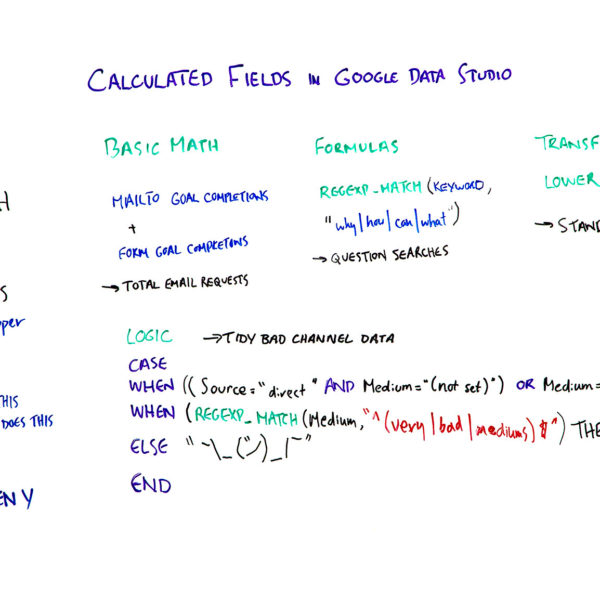 CALCULATED FIELDS IN GOOGLE DATA STUDIO
BASIC MATH
MAILTO GOAL COMPLETIONS
+
FORM GOAL COMPLETIONS
→ TOTAL EMAIL REQUESTS
FORMULAS
REGEXP_MATCH (KEYWORD,
"why|how|can|what")
→ QUESTION SEARCHES
TRANSF
LOWER
→ STAND
H
S
pper
THIS
DOES THIS
EN Y
LOGIC → TIDY BAD CHANNEL DATA
CASE
WHEN ((Source="direct" AND Medium="(not set)") OR Medium=
WHEN (REGEXP_MATCH(Medium,"^(very|bad|mediums)$") THE
ELSE "¯\_(ツ)_/¯"
END